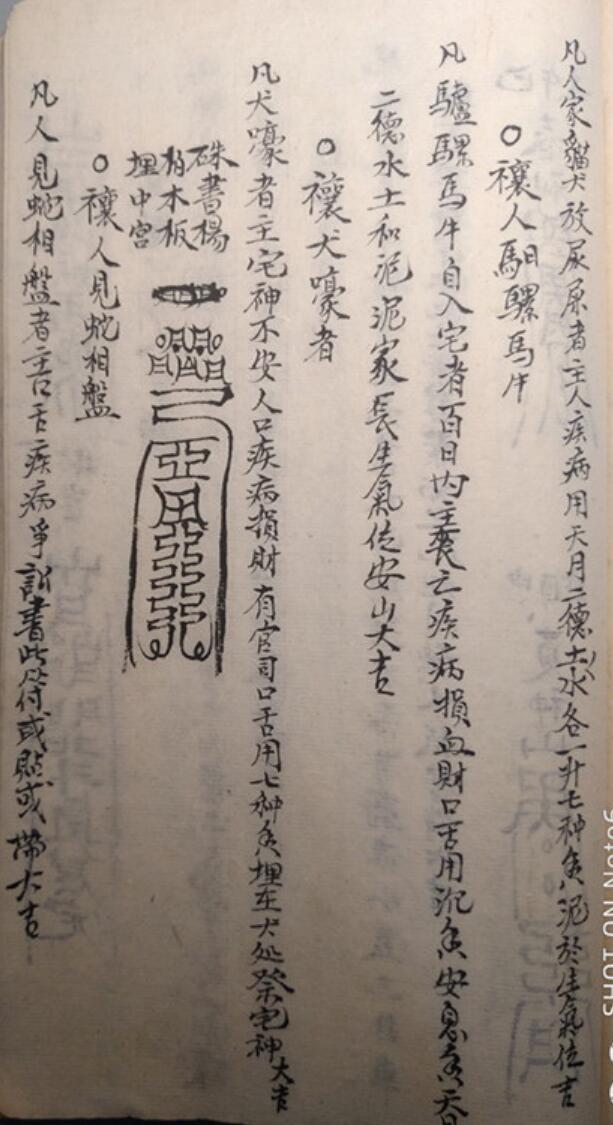 凡人家貓犬放尿屎者主人疾病用天月二德土水各一升七种香泥於生氣位吉
○禳人馹騾馬牛
凡驢騾馬牛自入宅者百日内主喪亡疾病損血財口舌用泥香安息香天月
二德水土和泥泥家長生氣位安山大吉
○禳犬嚎者
凡犬嚎者主宅神不安人口疾病損財有官司口舌用七种香埋在犬处祭宅神大吉
硃書楊
柏木板
埋中宮
○禳人見蛇相盤
凡人見蛇相盤者主口舌疾病爭訟書此符或貼或帶大吉
SHOT ON Note